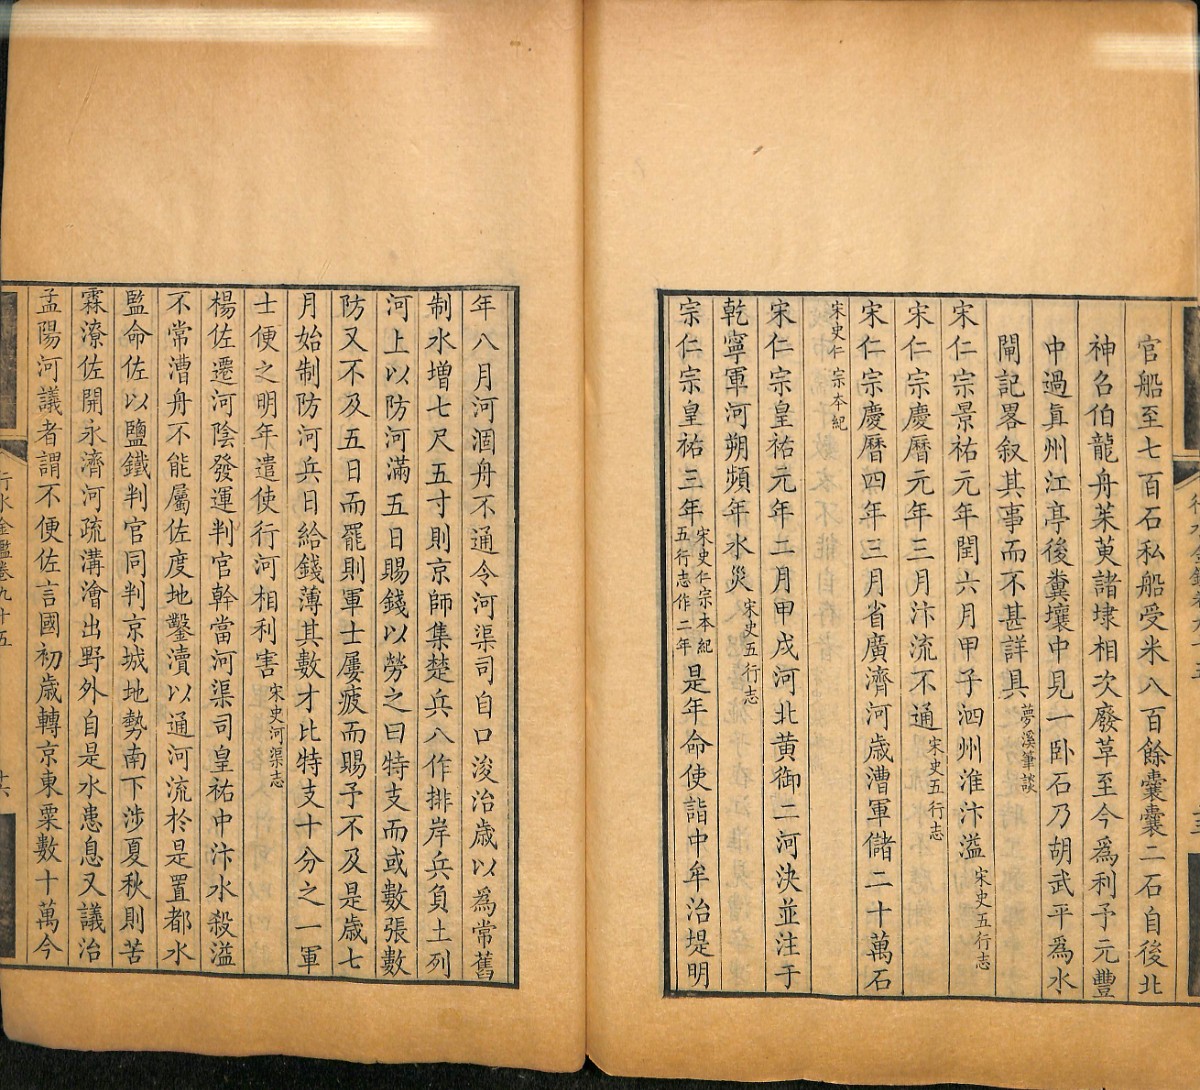 官船至七百石私船受米八百餘囊囊二石自後北
神召伯龍舟茱萸諸埭相次廢革至今爲利予元豐
中過眞州江亭後糞壤中見一卧石乃胡武平爲水
閘記畧叙其事而不甚詳具夢溪筆談
宋仁宗景祐元年閏六月甲子泗州淮汴溢宋史五行志
宋仁宗慶曆元年三月汴流不通宋史五行志
宋仁宗慶曆四年三月省廣濟河歲漕軍儲二十萬石
宋史仁宗本紀
宋仁宗皇祐元年二月甲戌河北黄御二河決並注于
乾寧軍河朔頻年水災宋史五行志
宗仁宗皇祐三年宋史仁宗本紀五行志作二年是年命使詣中牟治堤明
年八月河涸舟不通令河渠司自口浚治歲以爲常舊
制水增七尺五寸則京師集楚兵八作排岸兵負土列
河上以防河滿五日賜錢以勞之曰特支而或數張數
防又不及五日而罷則軍士屢疲而賜予不及是歲七
月始制防河兵日給錢薄其數才比特支十分之一軍
士便之明年遣使行河相利害宋史河渠志
楊佐遷河陰發運判官幹當河渠司皇祐中汴水殺溢
不常漕舟不能屬佐度地鑿瀆以通河流於是置都水
監命佐以鹽鐵判官同判京城地勢南下涉夏秋則苦
霖潦佐開永濟河疏溝澮出野外自是水患息又議治
孟陽河議者謂不便佐言國初歲轉京東粟數十萬今
行水金鑑卷九十五
十六